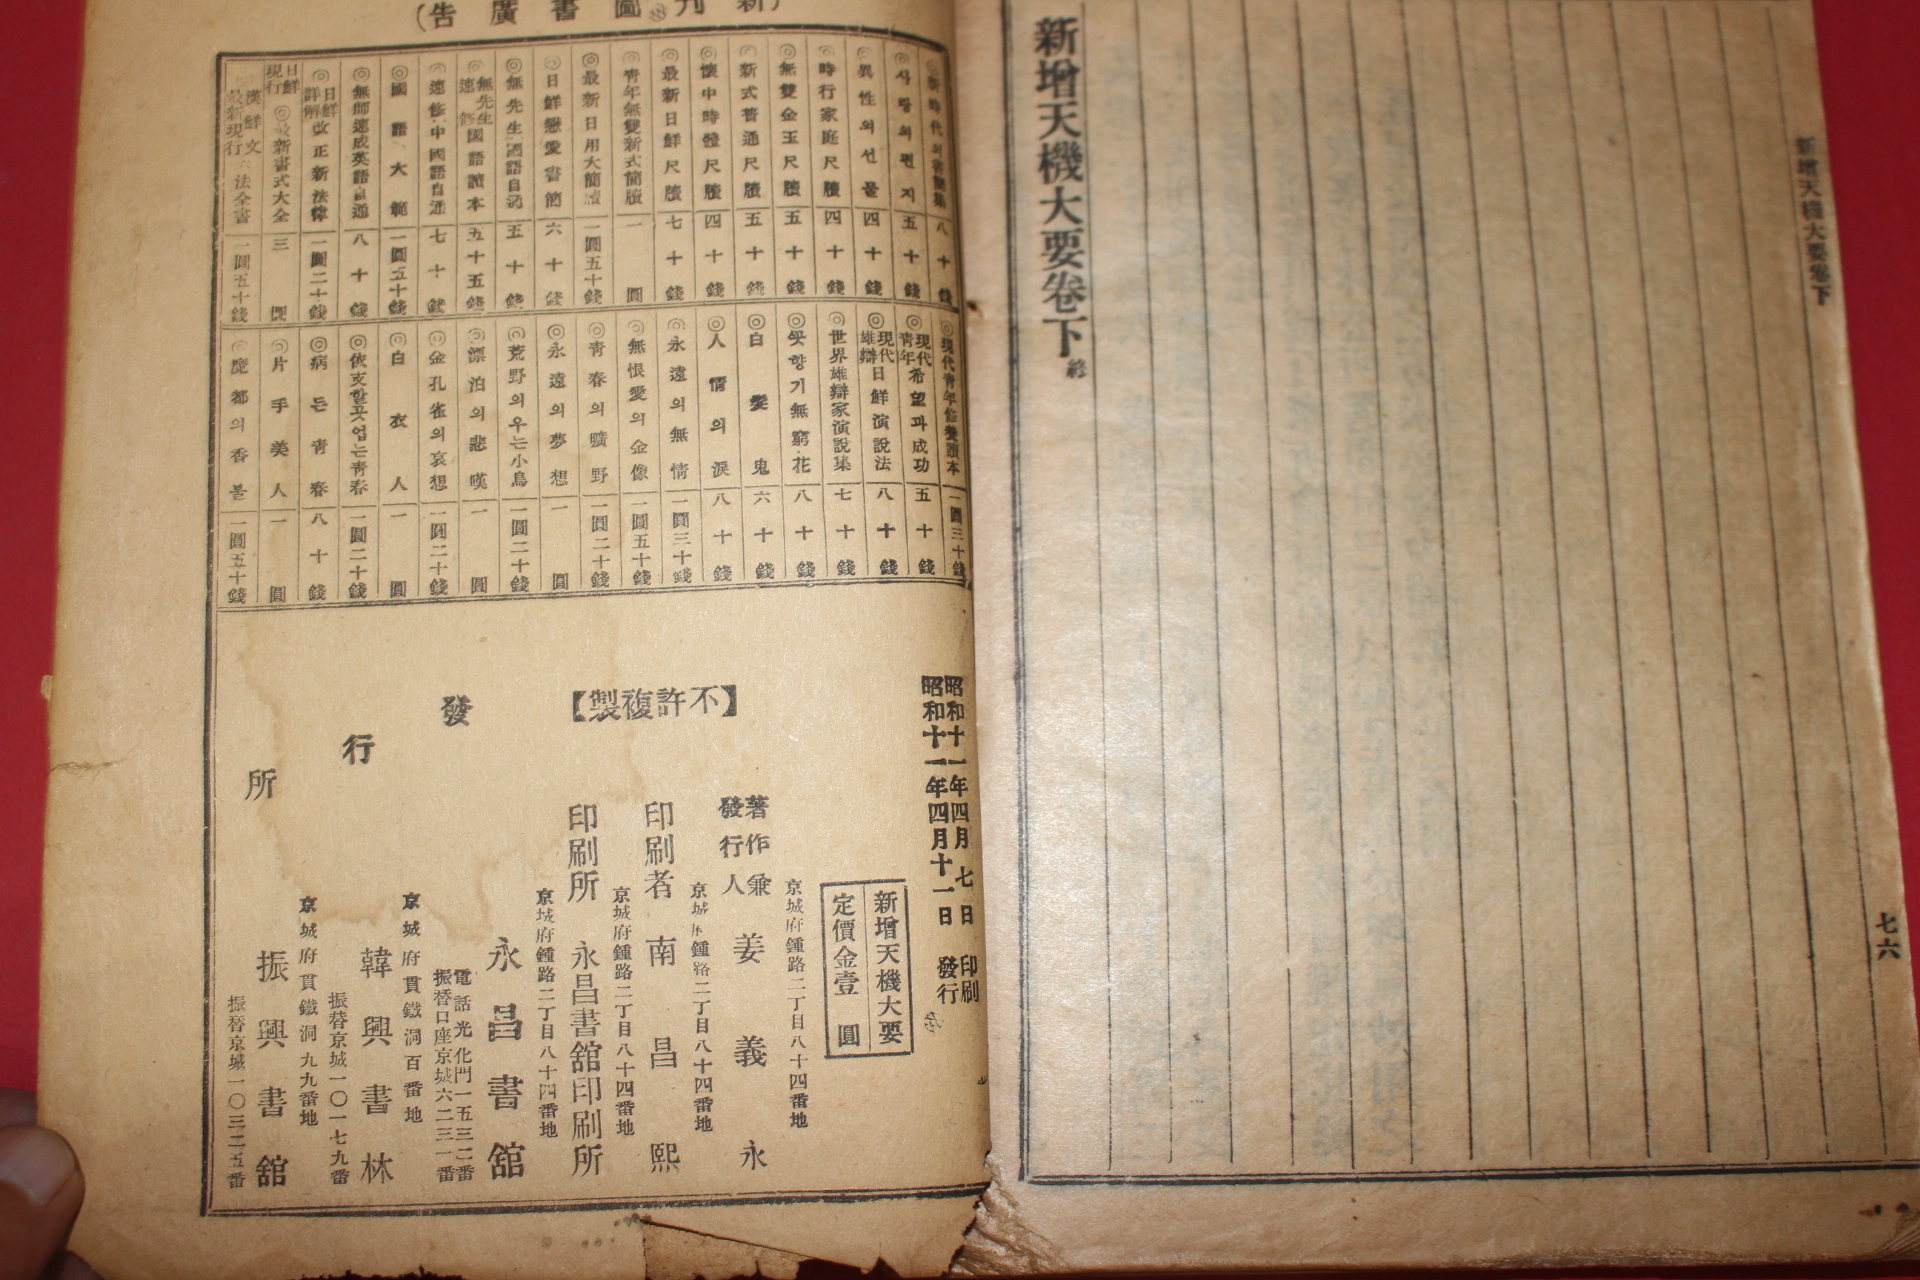 新增天機大要卷下
七六
新增天機大要卷下 終
(新刊圖書廣告)
◎新時代의書簡集 八十錢
◎사랑의편지 五十錢
◎異性의선물 四十錢
◎時行家庭尺牘 四十錢
◎無雙金玉尺牘 五十錢
◎新式普通尺牘 五十錢
◎懷中時體尺牘 四十錢
◎最新日鮮尺牘 七十錢
◎靑年無雙新式簡牘 一圓
◎最新日用大簡牘 一圓五十錢
◎日鮮戀愛書簡 六十錢
◎無先生國語自通 五十錢
◎無先生速修國語讀本 五十五錢
◎速修中國語自通 七十錢
◎國語大範 一圓五十錢
◎無師速成英語自通 八十錢
◎日鮮詳解改正新法律 一圓二十錢
日鮮現行◎最新書式大全 三圓
漢鮮文最新現行六法全書 一圓五十錢
◎現代靑年修養讀本 一圓三十錢
◎現代靑年希望과成功 五十錢
◎現代雄辯日鮮演說法 八十錢
◎世界雄辯家演說集 七十錢
◎꼿향기無窮花 八十錢
◎白髮鬼 六十錢
◎人情의淚 八十錢
◎永遠의無情 一圓三十錢
◎無恨愛의金像 一圓五十錢
◎靑春의曠野 一圓二十錢
◎永遠의夢想 一圓
◎荒野의우는小鳥 一圓二十錢
◎漂泊의悲嘆 一圓
◎金孔雀의哀想 一圓二十錢
◎白衣人 一圓
◎依支할곳업는靑春 一圓二十錢
◎病든靑春 八十錢
◎片手美人 一圓
◎魔都의香불 一圓五十錢
昭和十一年四月 七 日 印刷
昭和十一年四月十一日 發行
新增天機大要
定價金壹圓
【不許複製】
京城府鍾路二丁目八十四番地
著作兼
發行人 姜義永
京城府鍾路二丁目八十四番地
印刷者 南昌熙
京城府鍾路二丁目八十四番地
印刷所 永昌書舘印刷所
京城府鍾路二丁目八十四番地
發行所
永昌書舘
電話光化門一五三二番
振替口座京城六二三一番
京城府貫鐵洞百番地
韓興書林
振替京城一〇一七九番
京城府貫鐵洞九九番地
振興書舘
振替京城一〇三二五番